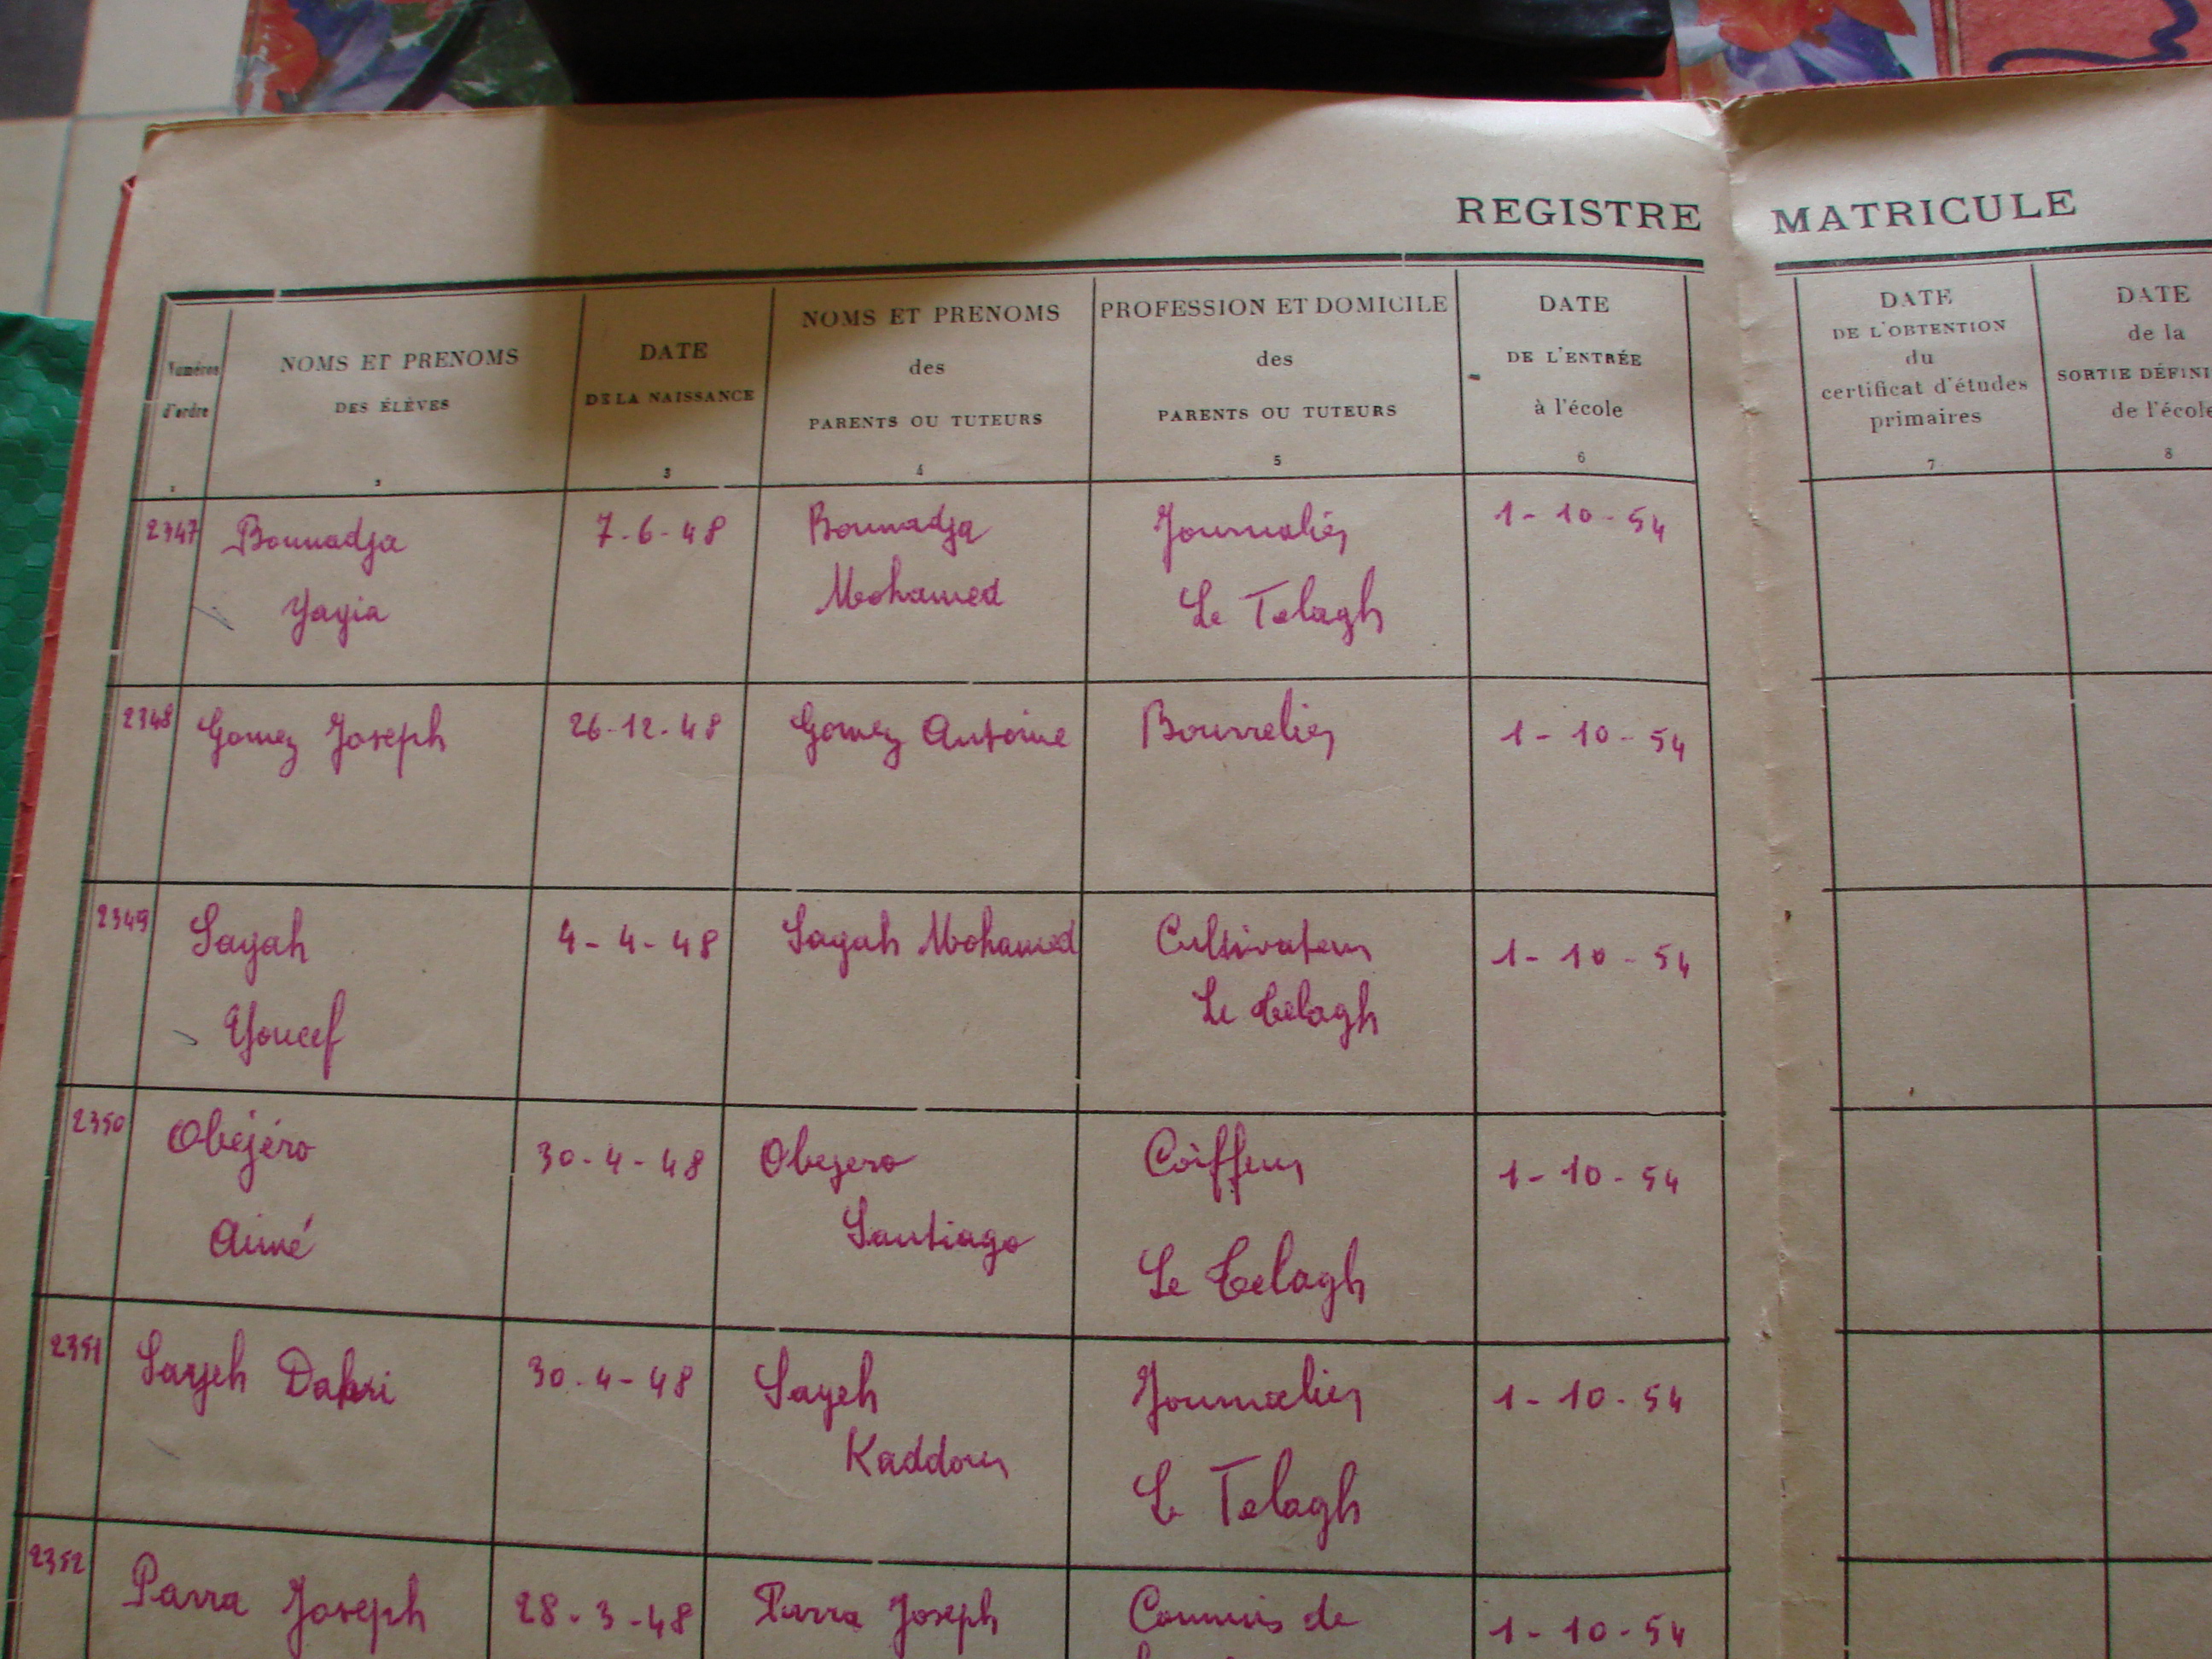 REGISTRE MATRICULE
Numéros
d'ordre
1
NOMS ET PRENOMS
DES ÉLÈVES
2
DATE
DE LA NAISSANCE
3
NOMS ET PRENOMS
des
PARENTS OU TUTEURS
4
PROFESSION ET DOMICILE
des
PARENTS OU TUTEURS
5
DATE
DE L'ENTRÉE
à l'école
6
DATE
DE L'OBTENTION
du
certificat d'études
primaires
7
DATE
de la
SORTIE DÉFINI
de l'école
8
2347 Bounadja 7-6-48 Bounadja Journalier 1-10-54
Yayia Mohamed Le Telagh
2348 Gomez Joseph 26-12-48 Gomez Antoine Bourrelier 1-10-54
2349 Sayah 4-4-48 Sayah Mohamed Cultivateur 1-10-54
Youcef Le Telagh
2350 Obéjéro 30-4-48 Obejero Coiffeur 1-10-54
Aimé Santiago Le Telagh
2351 Sayeh Dahri 30-4-48 Sayeh Journalier 1-10-54
Kaddour Le Telagh
2352 Parra Joseph 28-3-48 Parra Joseph Commis de 1-10-54